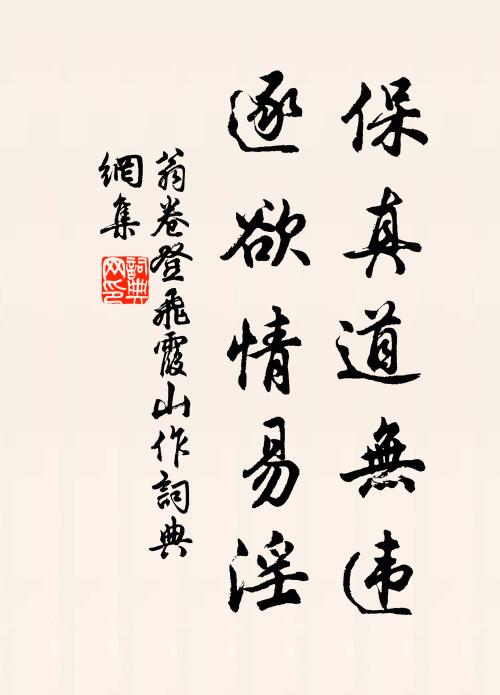 保真道無违
逐欲情易淫
翁卷登飛霞山作詞典
網集
詞典
网印